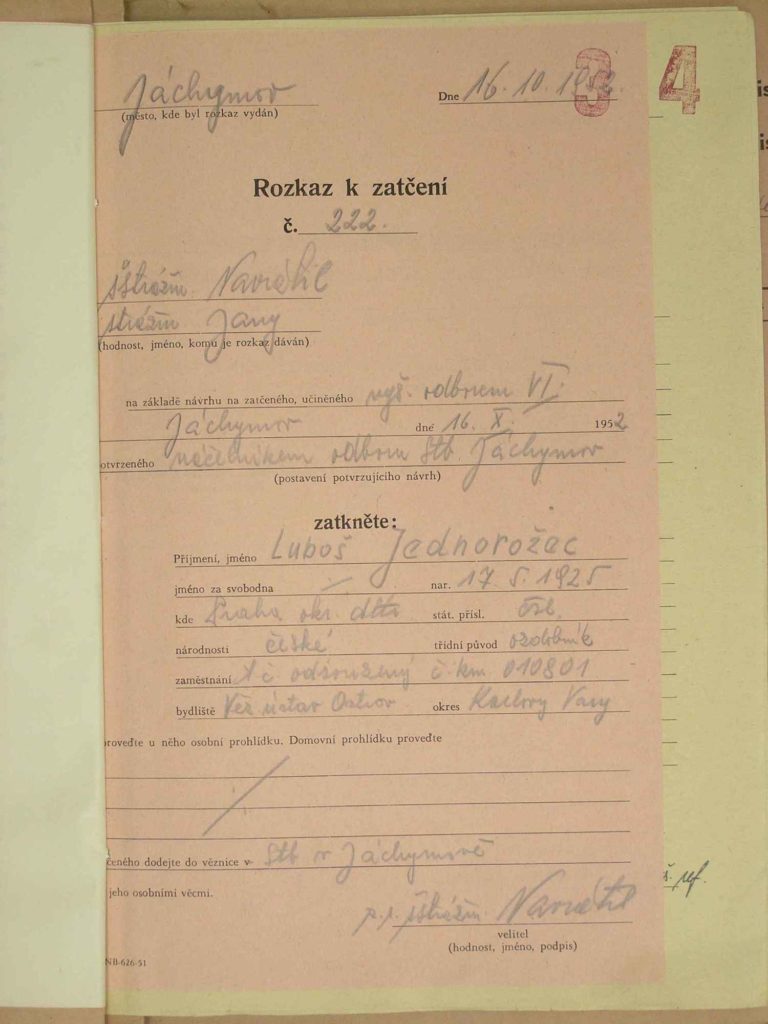 Jáchymov Dne 16. 10. 1952 3 4
(město, kde byl rozkaz vydán)
Rozkaz k zatčení
č. 222.
šstrážm Navrátil
strážm Jany
(hodnost, jméno, komu je rozkaz dáván)
na základě návrhu na zatčeného, učiněného vyš. odborem VI.
Jáchymov dné 16. X. 1952
otvrzeného náčelníkem odboru Stb Jáchymov
(postavení potvrzujícího návrh)
zatkněte:
Příjmení, jméno Luboš Jednorožec
jméno za svobodna — nar. 17. 5. 1925
kde Praha okr. dtto stát. přísl. čsl.
národnosti české třídní původ ozdobník
zaměstnání odsouzený č. km. 010801
bydliště Věz. ústav Ostrov okres Karlovy Vary
proveďte u něho osobní prohlídku. Domovní prohlídku proveďte
čeného dodejte do věznice v Stb v Jáchymově
jeho osobními věcmi.
p. p. šstrážm. Navrátil
velitel
(hodnost, jméno, podpis)
NB-626-51